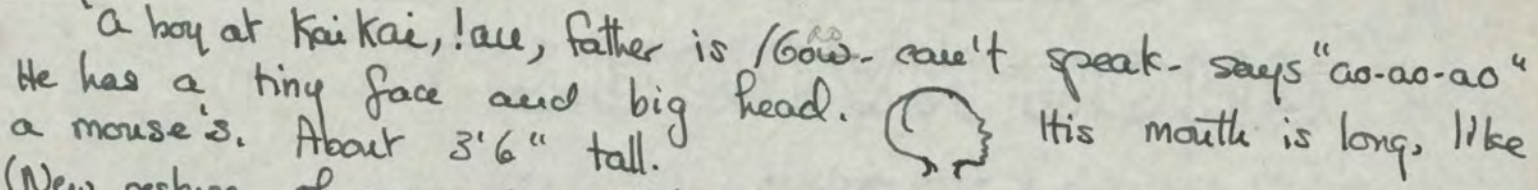 "a boy at KaiKai, !au, father is /Gow- can't speak- says "ao-ao-ao"
He has a tiny face and big head. His mouth is long, like
a mouse's. About 3'6" tall.
(New